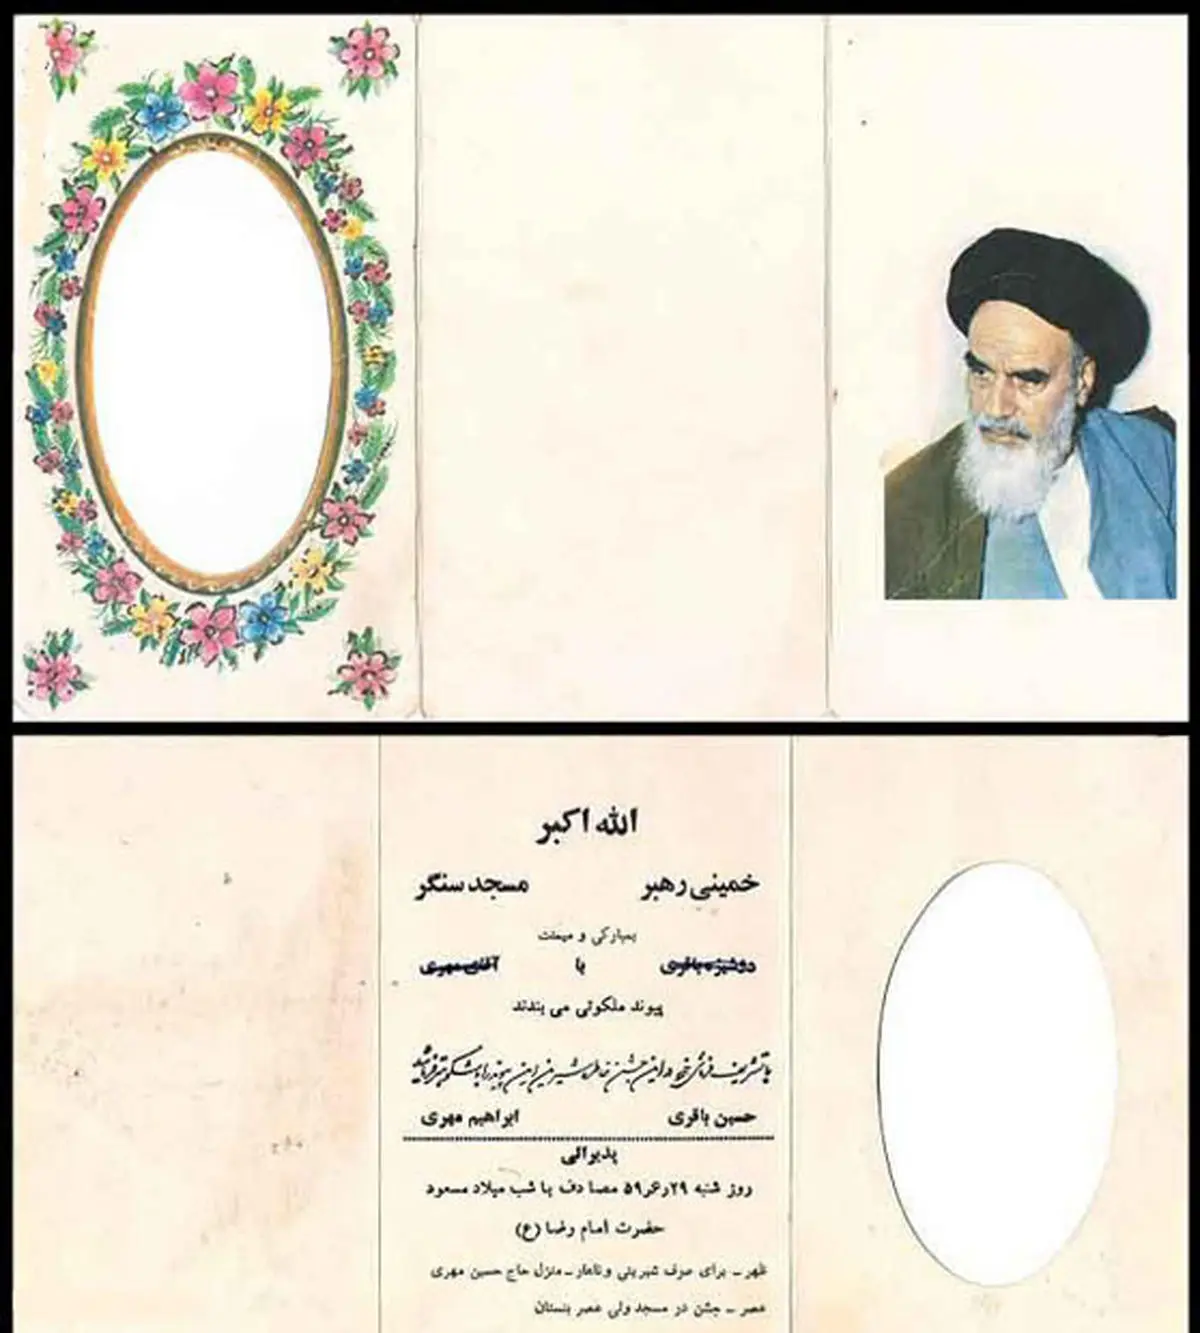 الله اکبر
خمینی رهبر مسجد سنگر
بمبارکی و میمنت
دوشیزه باقری با آقای مهری
پیوند ملکوتی می بندند
با تشریف فرمائی خود در این جشن خاطره شیرین این پیوند را باشکوهتر فرمائید
حسین باقری ابراهیم مهری
پذیرائی
روز شنبه ۵۹ر۶ر۲۹ مصادف با شب میلاد مسعود
حضرت امام رضا (ع)
ظهر ــ برای صرف شیرینی و ناهار ــ منزل حاج حسین مهری
عصر ــ جشن در مسجد ولی عصر بنستان